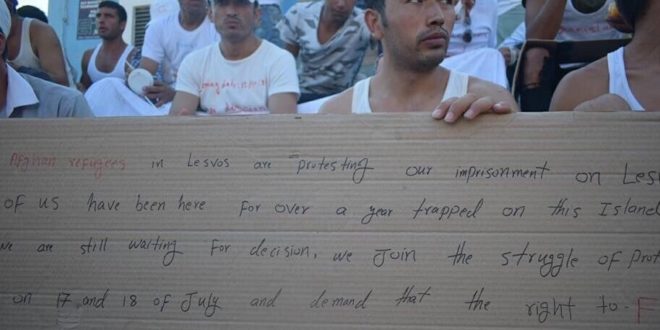 Afghan refugees in Lesvos are protesting our imprisonment on Les
OF us have been here For over a year trapped on this Island
we are still waiting For decision, we Join the struggle of prot
on 17 and 18 of July and demand that the right to F